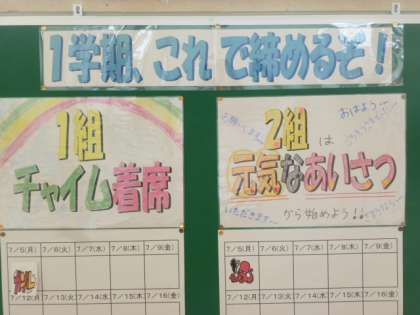 1学期、これで締めるぞ!
1組
チャイム着席
2組は
元気なあいさつ
から始めよう!!
おはよう
7/5(月) 7/6(火) 7/7(水) 7/8(木) 7/9(金)
7/12(月) 7/13(火) 7/14(水) 7/15(木) 7/16(金)
7/5(月) 7/6(火) 7/7(水) 7/8(木) 7/9(金)
7/12(月) 7/13(火) 7/14(水) 7/15(木) 7/16(金)